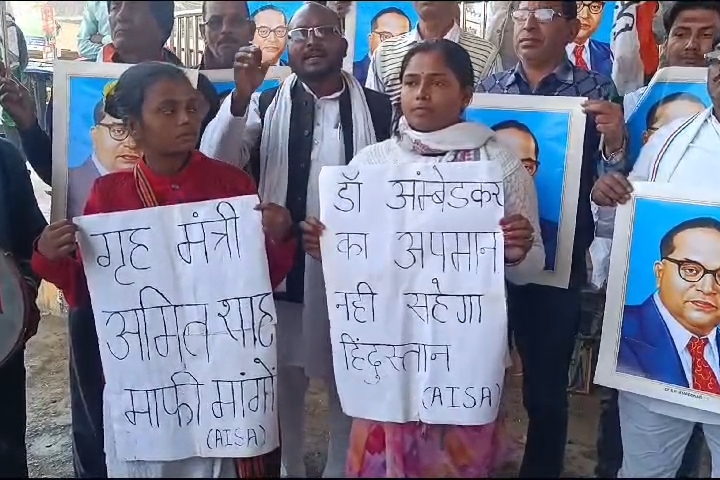 गृह मंत्री
अमित शाह
माफी मांगो
(AISA)
डॉ अम्बेडकर
का अपमान
नही सहेगा
हिंदुस्तान
(AISA)